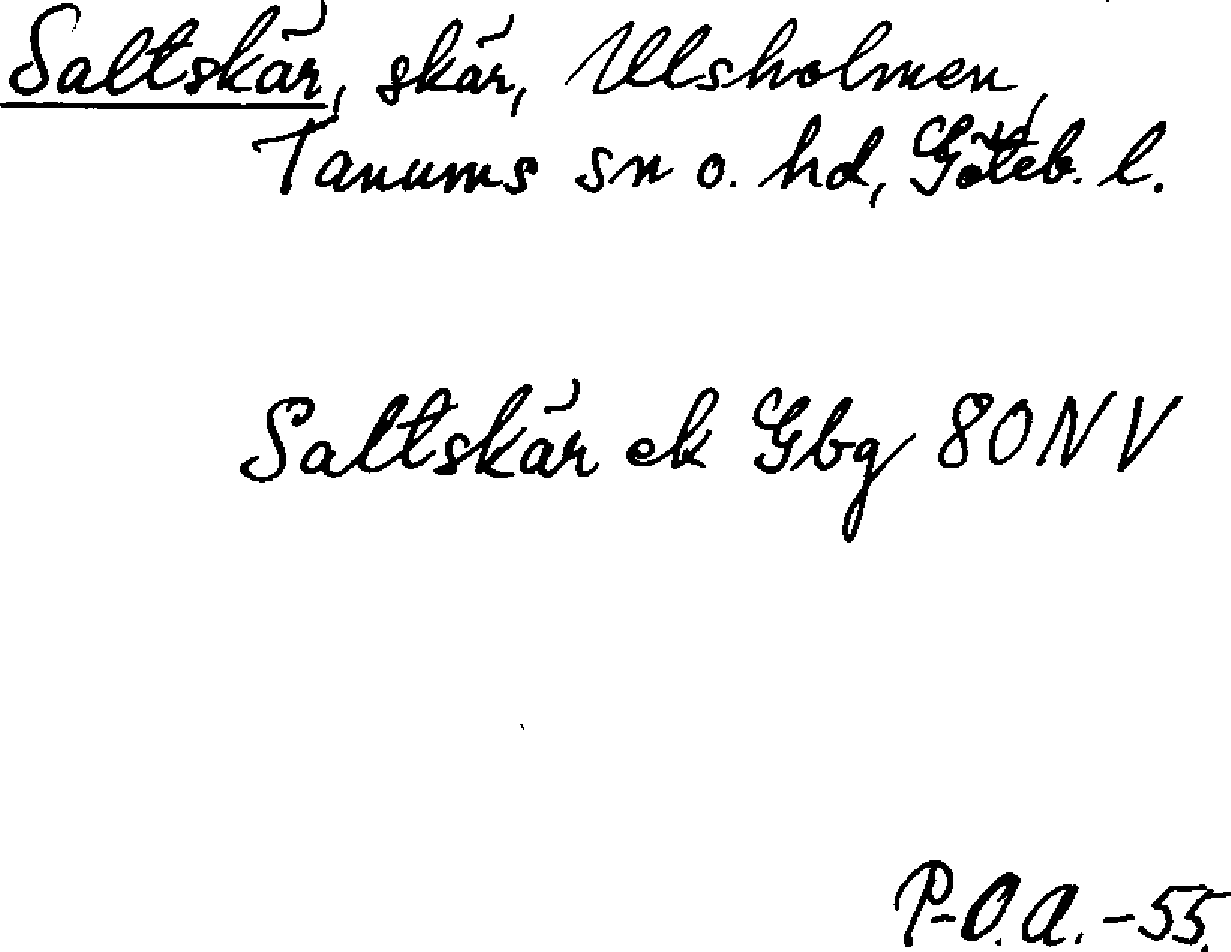 Saltskär, skär, Ulsholmen,
Tanums sn o. hd, Göteb. l.
Saltskär ek Gbg 80NV
P-O.A.-55.